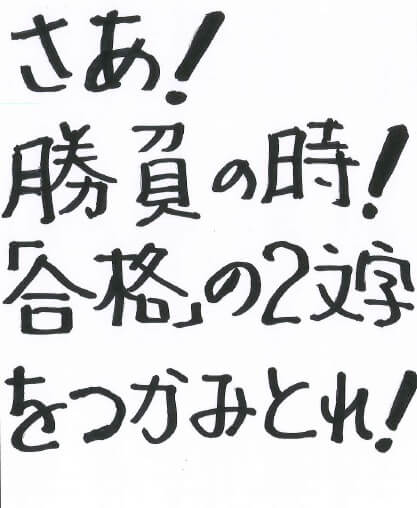 さあ!
勝負の時!
「合格」の2文字
をつかみとれ!